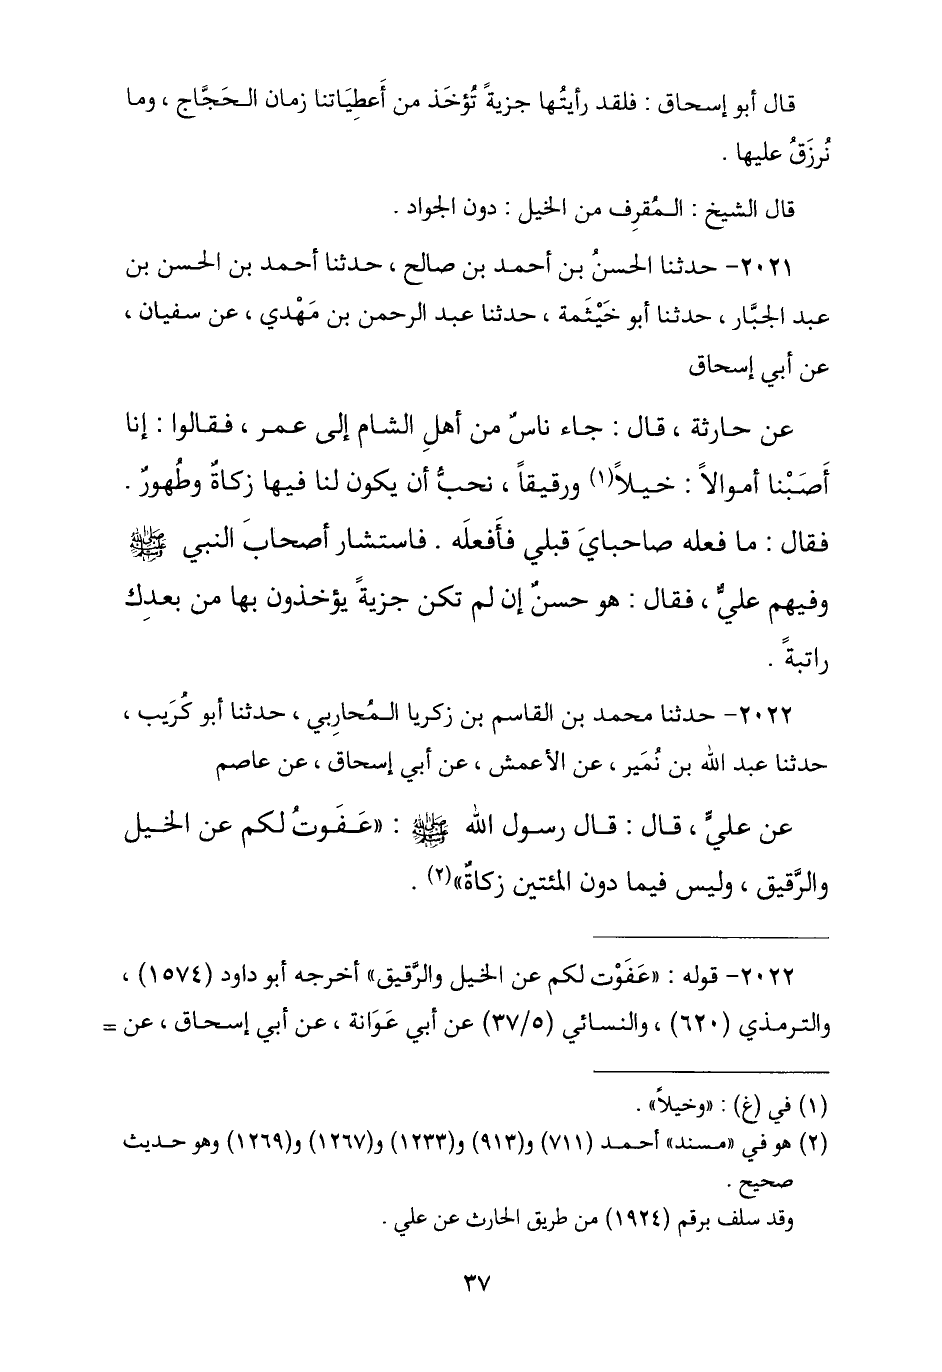 قال أبو إسحاق : فلقد رأيتُها جزيةً تُؤخَذ من أَعطِيَاتنا زمان الـحَجَّاج ، وما
نُرزَقُ عليها .
قال الشيخ : الـمُقرِف من الخيل : دون الجواد .
٢٠٢١- حدثنا الحسنُ بن أحمد بن صالح ، حدثنا أحمد بن الحسن بن
عبد الجبَّار ، حدثنا أبو خَيْثَمة ، حدثنا عبد الرحمن بن مَهْدي ، عن سفيان ،
عن أبي إسحاق
عن حارثة ، قال : جاء ناسٌ من أهلِ الشام إلى عمر ، فقالوا : إنا
أَصَبْنا أموالاً : خيلاً(١) ورقيقاً ، نحبُّ أن يكون لنا فيها زكاةٌ وطُهورٌ .
فقال : ما فعله صاحبايَ قبلي فأَفعلَه . فاستشار أصحابَ النبي ﷺ
وفيهم عليٌّ ، فقال : هو حسنٌ إن لم تكن جزيةً يؤخذون بها من بعدِك
راتبةً .
٢٠٢٢- حدثنا محمد بن القاسم بن زكريا الـمُحارِبي ، حدثنا أبو كُرَيب ،
حدثنا عبد الله بن نُمَير ، عن الأعمش ، عن أبي إسحاق ، عن عاصم
عن عليٍّ ، قال : قال رسول الله ﷺ : «عَفَوتُ لكم عن الخيل
والرَّقيق ، وليس فيما دون المئتين زكاةٌ»(٢) .
٢٠٢٢- قوله : «عَفَوْت لكم عن الخيل والرَّقيق» أخرجه أبو داود (١٥٧٤) ،
والترمذي (٦٢٠) ، والنسائي (٣٧/٥) عن أبي عَوَانة ، عن أبي إسحاق ، عن =
(١) في (غ) : «وخيلاً» .
(٢) هو في «مسند» أحمد (٧١١) و(٩١٣) و(١٢٣٣) و(١٢٦٧) و(١٢٦٩) وهو حديث
صحيح .
وقد سلف برقم (١٩٢٤) من طريق الحارث عن علي .
٣٧